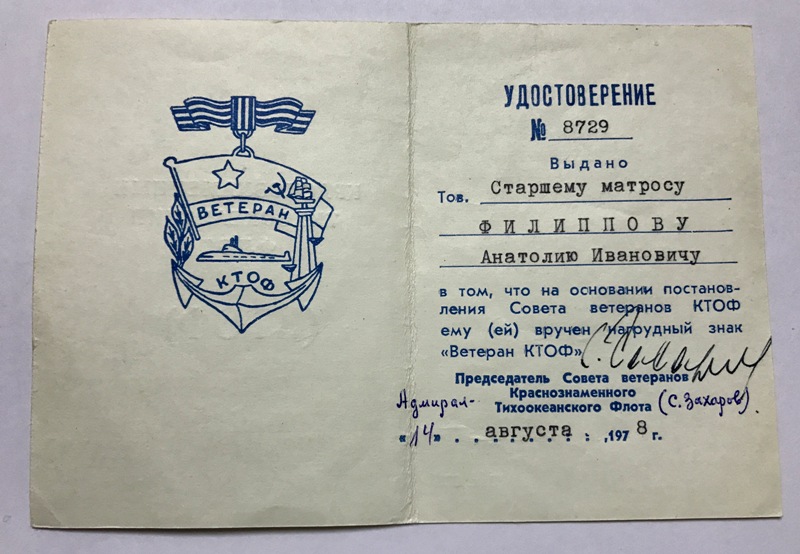 ВЕТЕРАН
КТОФ
УДОСТОВЕРЕНИЕ
№ 8729
Выдано
Тов. Старшему матросу
ФИЛИППОВУ
Анатолию Ивановичу
в том, что на основании постанов-
ления Совета ветеранов КТОФ
ему (ей) вручен нагрудный знак
«Ветеран КТОФ»
Председатель Совета ветеранов
Краснознаменного
Адмирал- Тихоокеанского Флота (С. Захаров).
«14» августа 1978 г.